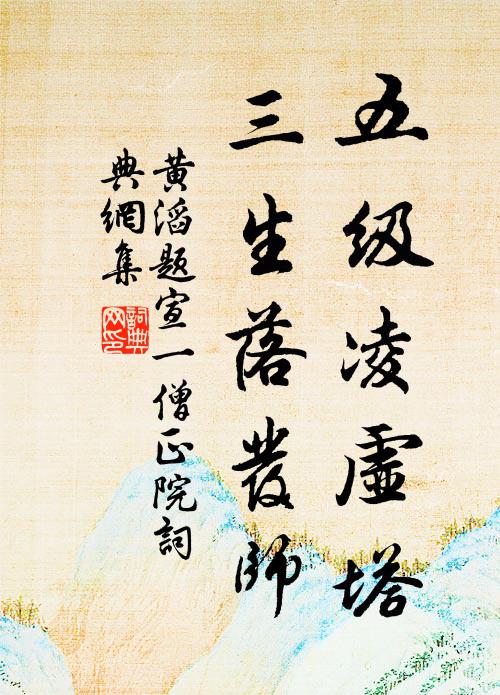 五级凌虚塔
三生落發師
黄滔题宣一僧正院詞
典網集
詞典
网印